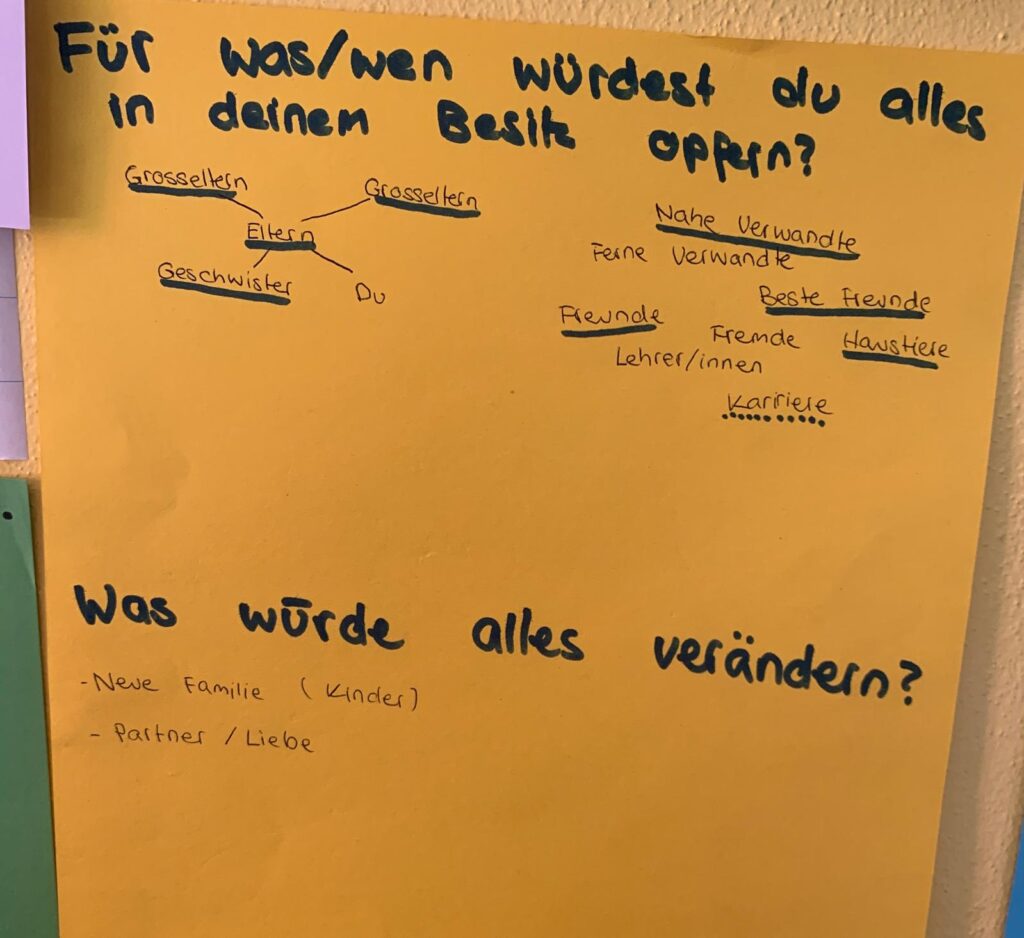 Für was/wen würdest du alles
in deinem Besitz opfern?
Grosseltern Grosseltern
Eltern
Geschwister Du
Nahe Verwandte
Ferne Verwandte
Beste Freunde
Freunde Fremde Haustiere
Lehrer/innen
Karriere
Was würde alles verändern?
- Neue Familie (Kinder)
- Partner / Liebe